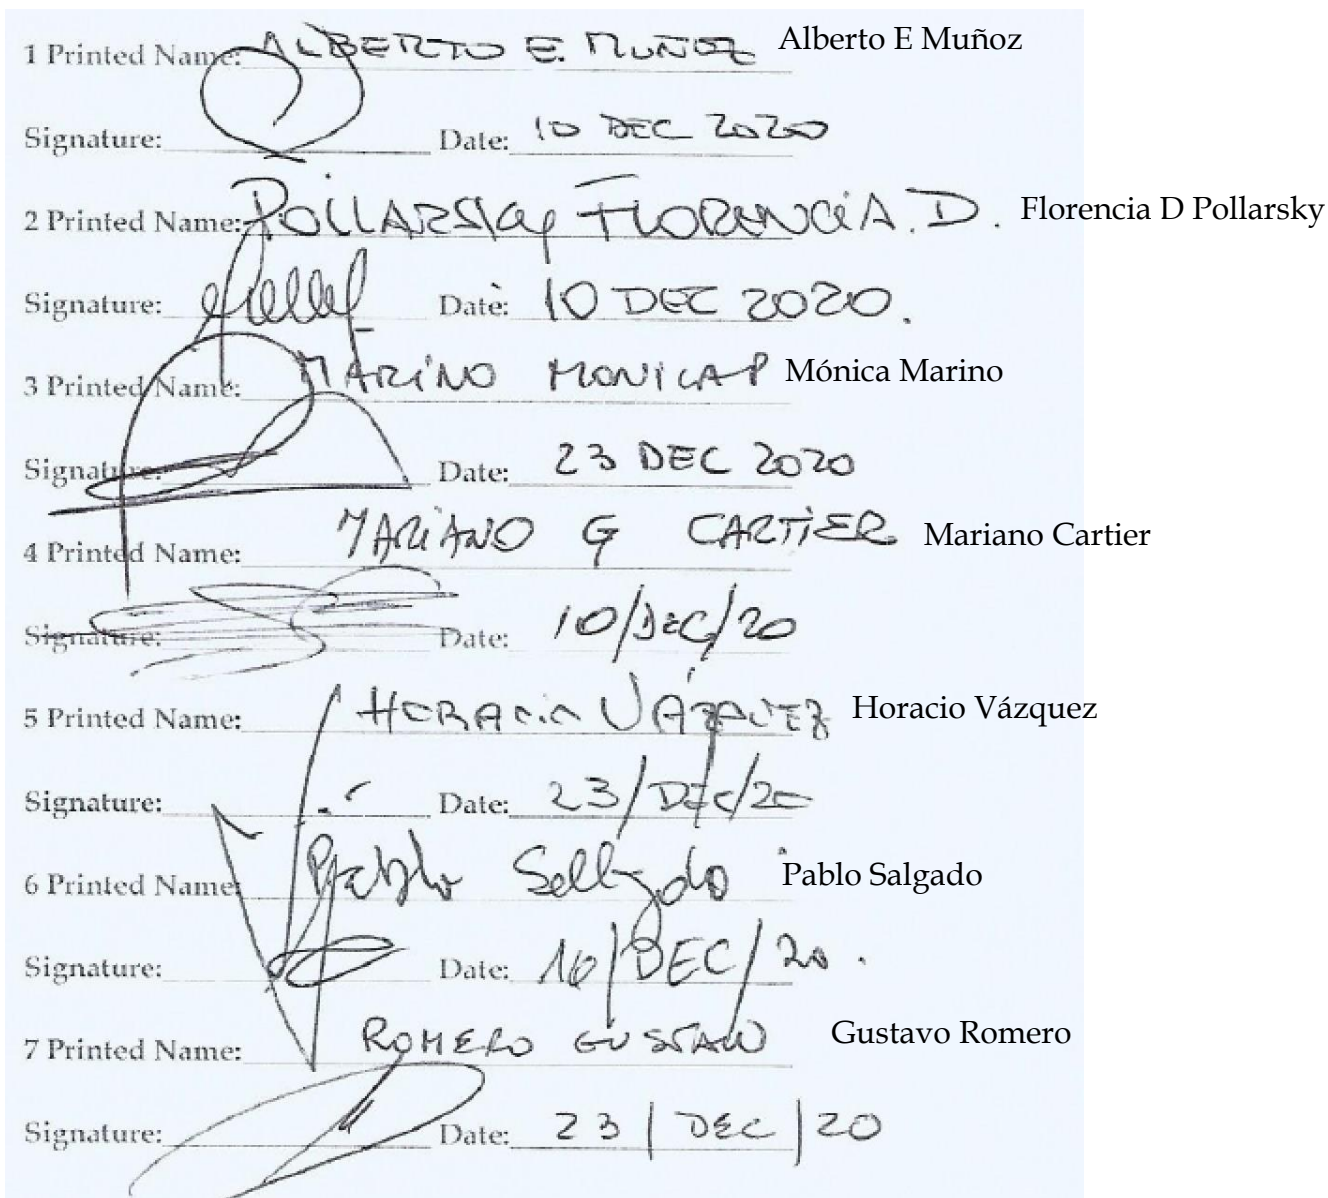 1 Printed Name: ALBERTO E. MUÑOZ Alberto E Muñoz
Signature: Date: 10 DEC 2020
2 Printed Name: POLLARSKY FLORENCIA. D. Florencia D Pollarsky
Signature: Date: 10 DEC 2020.
3 Printed Name: MARINO MONICA P Mónica Marino
Signature: Date: 23 DEC 2020
4 Printed Name: MARIANO G CARTIER Mariano Cartier
Signature: Date: 10/DEC/20
5 Printed Name: HORACIO VÁZQUEZ Horacio Vázquez
Signature: Date: 23/DEC/20
6 Printed Name: Pablo Salgado Pablo Salgado
Signature: Date: 10/DEC/20.
7 Printed Name: ROMERO GUSTAVO Gustavo Romero
Signature: Date: 23/DEC/20